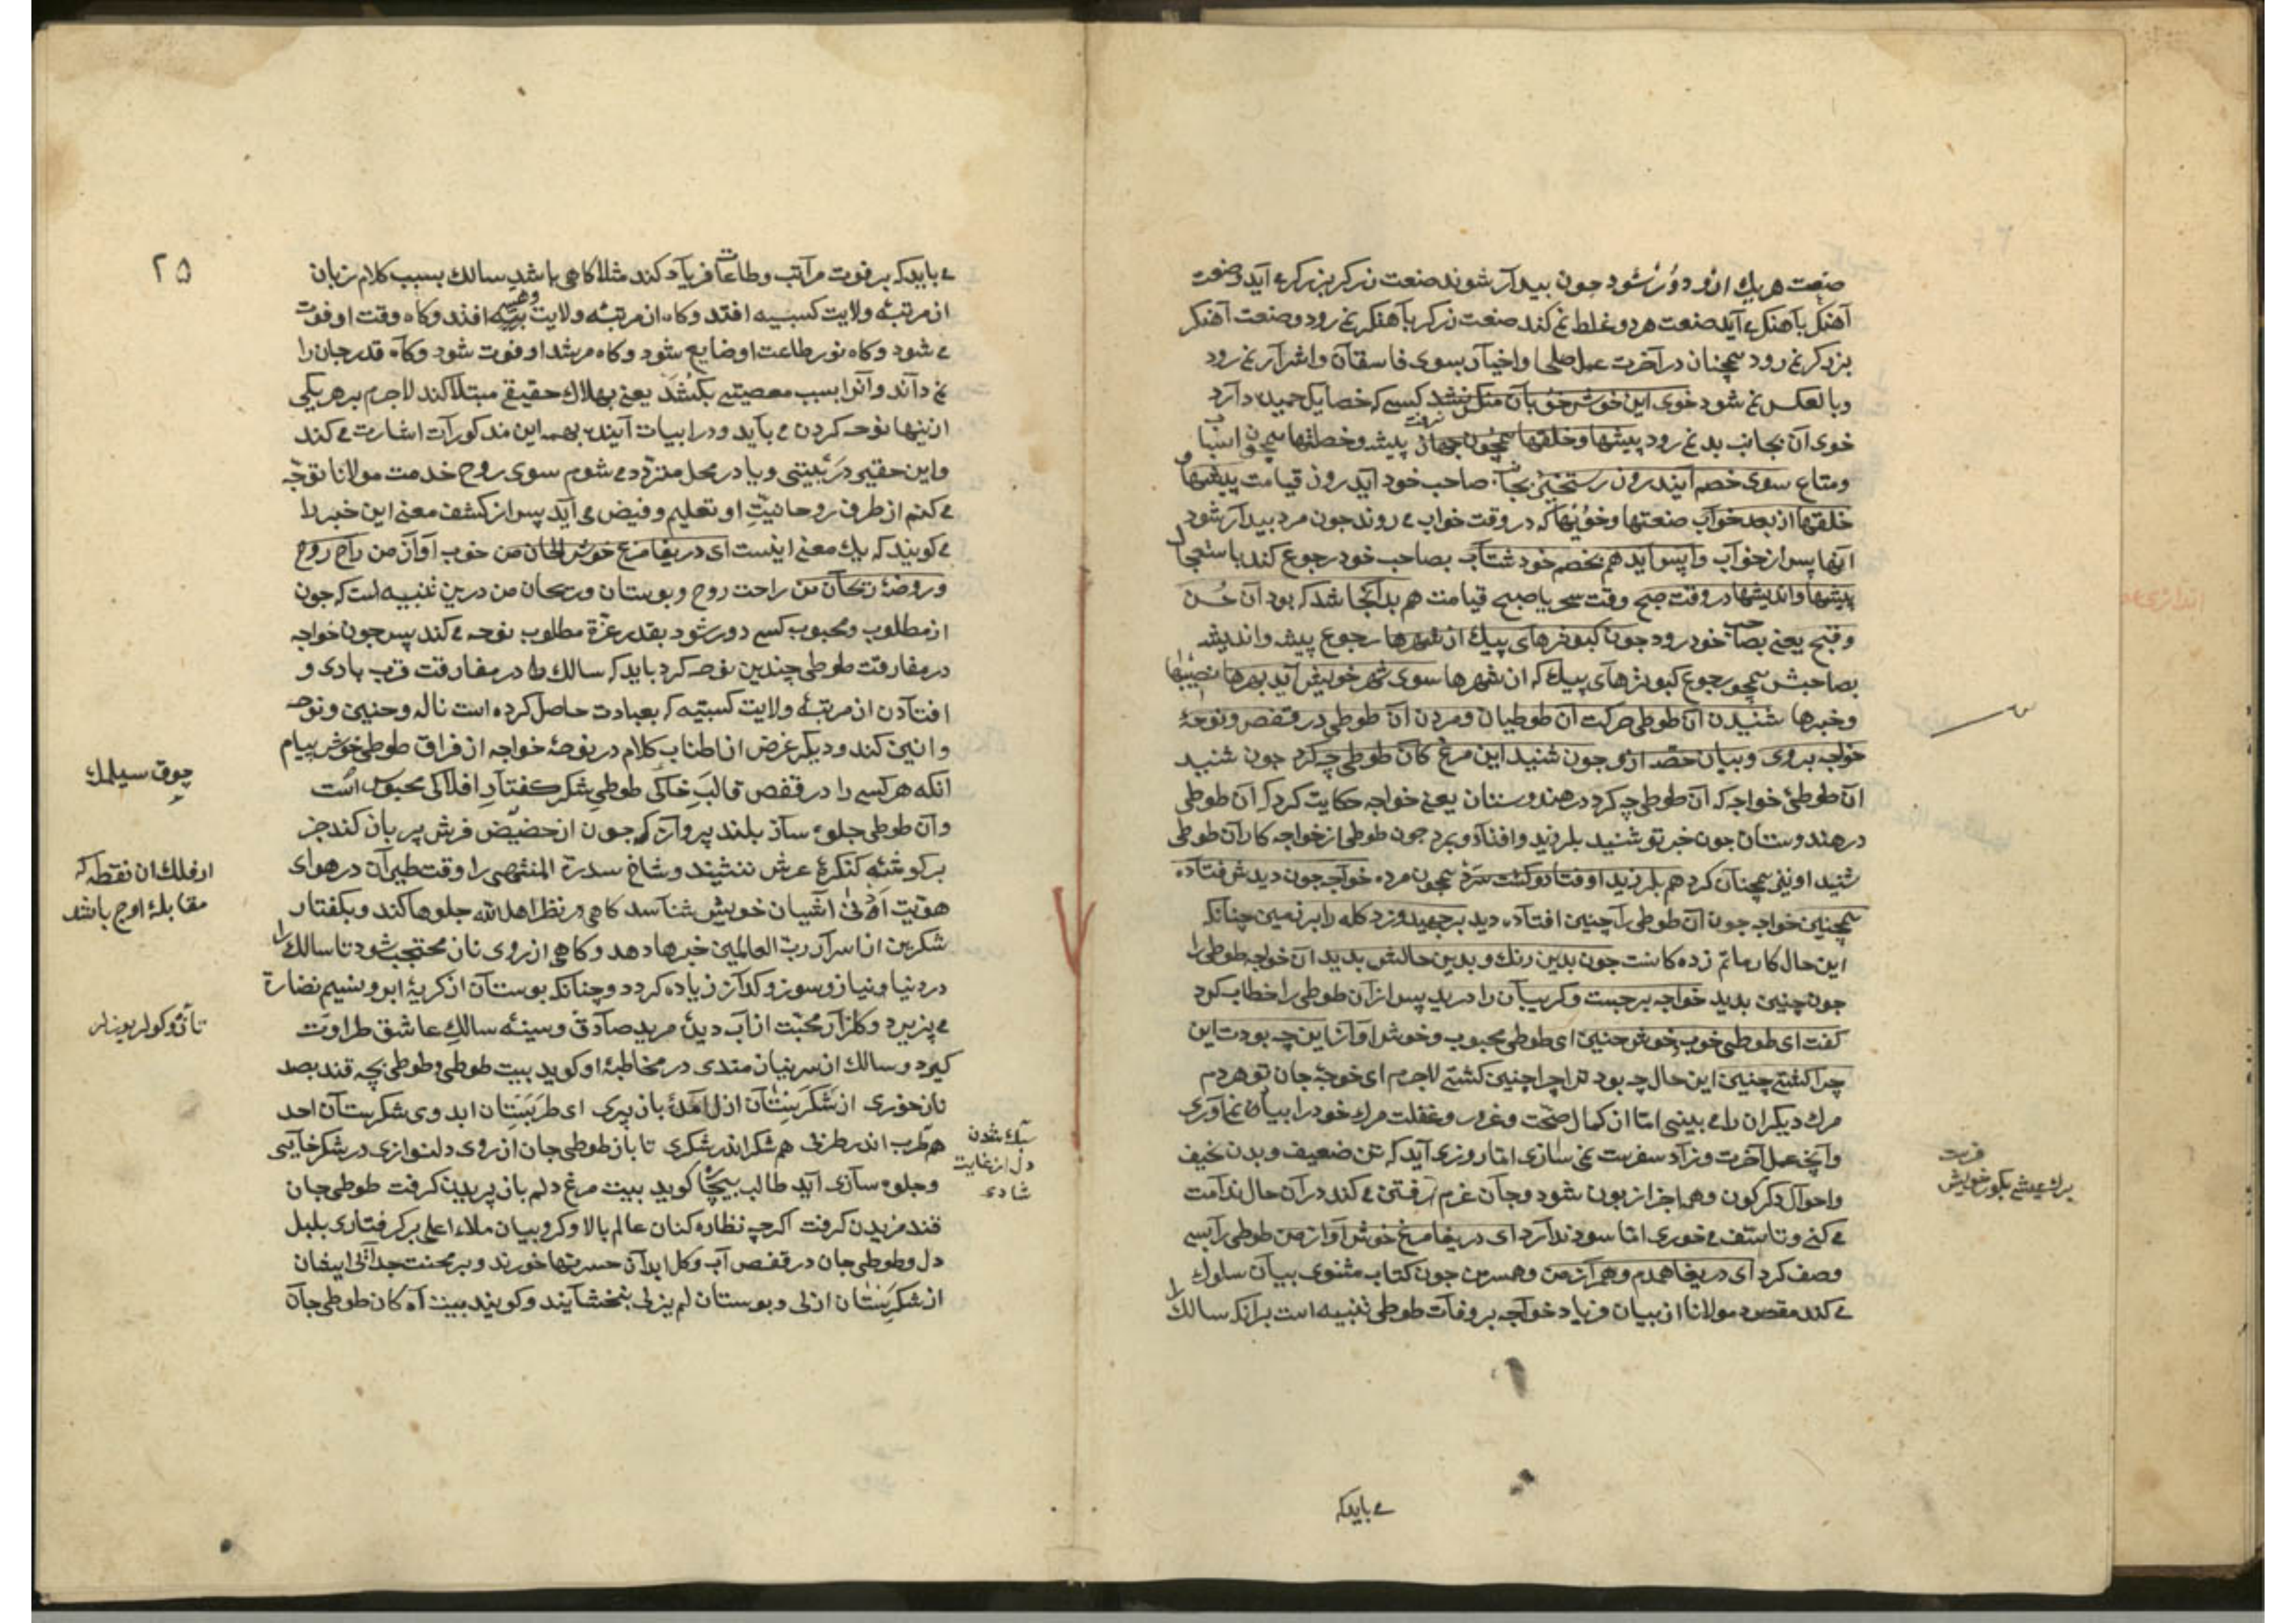 صنعت هریك ازو دور شود چون بیدار شوند صنعت زرکر بزرکر می آید و صنعت
آهنکر بآهنکر می آید صنعت هر دو غلط نمی کند صنعت زرکر بآهنکر نمی رود و صنعت آهنکر
بزرکر نمی رود همچنان در آخرت عمل صلحا و اخیار بسوی فاسقان و اشرار نمی رود
و بالعکس نمی شود خوی این خوش خو بآن منکر نشد کسی که خصایل حمیده دارد
خوی آن بجانب بد نمی رود پیشها و خلقها همچون جهاز پیشه و خصلتها همچون اسباب
و متاع سوی خصم آیند روز رستخیز بجانب صاحب خود آید روز قیامت پیشها و
خلقها از بعد خواب صنعتها و خویها که در وقت خواب می روند چون مرد بیدار شود
آنها پس از خواب واپس آید هم بخصم خود شتاب بصاحب خود رجوع کند باستعجال
پیشها و اندیشها در وقت صبح وقت سحر یا صبح قیامت هم بدانجا شد که بود آن حسن
و قبح یعنی بصاحب خود رود چون کبوترهای پیك از شهرها رجوع پیشه و اندیشه
بصاحبش همچو رجوع کبوترهای پیك که از شهرها سوی شهر خویش آید بهرها نصیبها
و خبرها شنیدن آن طوطی حرکت آن طوطیان و مردن آن طوطی در قفص و نوحهٔ
خواجه بر وی و بیان حصه ازو چون شنید این مرغ کان طوطی چه کرد چون شنید
آن طوطئ خواجه که آن طوطی چه کرد در هندوستان یعنی خواجه حکایت کرد که آن طوطی
در هندوستان چون خبر تو شنید بلرزید و افتاد و بمرد چون طوطی از خواجه کار آن طوطی
شنید او نیز همچنان کرد هم بلرزید اوفتاد و کشت سرد همچون مرده خواجه چون دیدش فتاده
همچنین خواجه چون آن طوطی را چنین افتاده دید برجهید و زد کله را بر زمین چنانکه
این حال کار ماتم زده کانست چون بدین رنك و بدین حالش بدید آن خواجه طوطی را
چون چنین بدید خواجه برجست و کریبان را درید پس از آن طوطی را خطاب کرد
کفت ای طوطی خوب خوش حنین ای طوطی محبوب و خوش آواز این چه بودت این
چرا کشتی چنین این حال چه بود ترا چرا چنین کشتی لاجرم ای خوجهٔ جان تو هر دم
مرك دیکران را می بینی اما از کمال صحت و غرور و غفلت مرك خود را بیاد نمی آوری
و آنچه عمل آخرت و زاد سفرست نمی سازی اما روزی آید که تن ضعیف و بدن نحیف
و احوال دکرکون و همه اجزا زبون شود و جان عزم رفتن می کند در آن حال ندامت
می کنی و تاسف می خوری اما سود ندارد ای دریغا مرغ خوش آواز من طوطی را بسی
وصف کرد ای دریغا همدم و همراز من و همسر من چون کتاب مثنوی بیان سلوك
می کند مقصود مولانا از بیان فریاد خواجه بر وفات طوطی تنبیه است برانکه سالك را
می باید که
۲۵
می باید که بر فوت مراتب و طاعات فریاد کند مثلا کاهی باشد سالك بسبب کلام زبان
از مرتبهٔ ولایت کسبیه افتد و کاه از مرتبهٔ ولایت وهبیه افتد و کاه وقت او فوت
می شود و کاه نور طاعت او ضایع شود و کاه مرشد او فوت شود و کاه قدر جان را
نمی داند و آنرا بسبب معصیتی بکشد یعنی بهلاك حقیقی مبتلا کند لاجرم بر هر یکی
ازینها نوحه کردن می باید و در ابیات آینده بهمه این مذکورات اشارت می کند
و این حقیر در بیتی و یا در محل متردد می شوم سوی روح خدمت مولانا توجه
می کنم از طرف روحانیت او تعلیم و فیض می آید پس از کشف معنی این خبر را
می کویند که یك معنی اینست ای دریغا مرغ خوش الحان من خوب آواز من راح روح
و روضهٔ ریحان من راحت روح و بوستان و ریحان من درین تنبیه است که چون
از مطلوب و محبوب کسی دور شود بقدر عزة مطلوب نوحه می کند پس چون خواجه
در مفارقت طوطی چندین نوحه کرد باید که سالك را در مفارقت قرب هادی و
افتادن از مرتبهٔ ولایت کسبیه که بعبادت حاصل کرده است ناله و حنین و نوحه
و انین کند و دیکر غرض از اطناب کلام در نوحهٔ خواجه از فراق طوطی خوش پیام
آنکه هر کسی را در قفص قالب خاکی طوطی شکر کفتار افلاکی محبوس است
و آن طوطی جلوه ساز بلند پرواز که چون از حضیض فرش پر باز کند جز
بر کوشهٔ کنکرهٔ عرش ننشیند و شاخ سدرة المنتهی را وقت طیران در هوای
هویت ادنی آشیان خویش شناسد کاهی در نظر اهل الله جلوها کند و بکفتار
شکرین از اسرار رب العالمین خبرها دهد و کاهی از روی ناز محتجب شود تا سالك را
درد نیاز و سوز و کداز زیاده کردد و چنانکه بوستان از کریهٔ ابر و نسیم نضارة
می پزیرد و کلزار محبت از آب دیدهٔ مرید صادق و سینهٔ سالك عاشق طراوت
کیرد و سالك از سر نیازمندی در مخاطبهٔ او کوید بیت طوطی و طوطی بچه قند بصد
ناز خوری از شکرستان ازل آمدهٔ باز پری ای طربستان ابد وی شکرستان احد
هم طرب اندر طربی هم شکر اندر شکری تا باز طوطی جان از روی دلنوازی در شکرخایی
و جلوه سازی آید طالب بیچاره کوید بیت مرغ دلم باز پریدن کرفت طوطی جان
قند مزیدن کرفت اکرچه نظاره کنان عالم بالا و کروبیان ملاء اعلی بر کرفتاری بلبل
دل و طوطی جان در قفص آب و کل ابدان حسرتها خورند و بر محنت جدائی ایشان
از شکرستان ازلی و بوستان لم یزلی بخشایند و کویند بیت آه کان طوطی جان
چوق سیلمك
از فلك ان نقطه که
مقابلهٔ اوج باشد
سبك شدن
دل از غایت
شادی